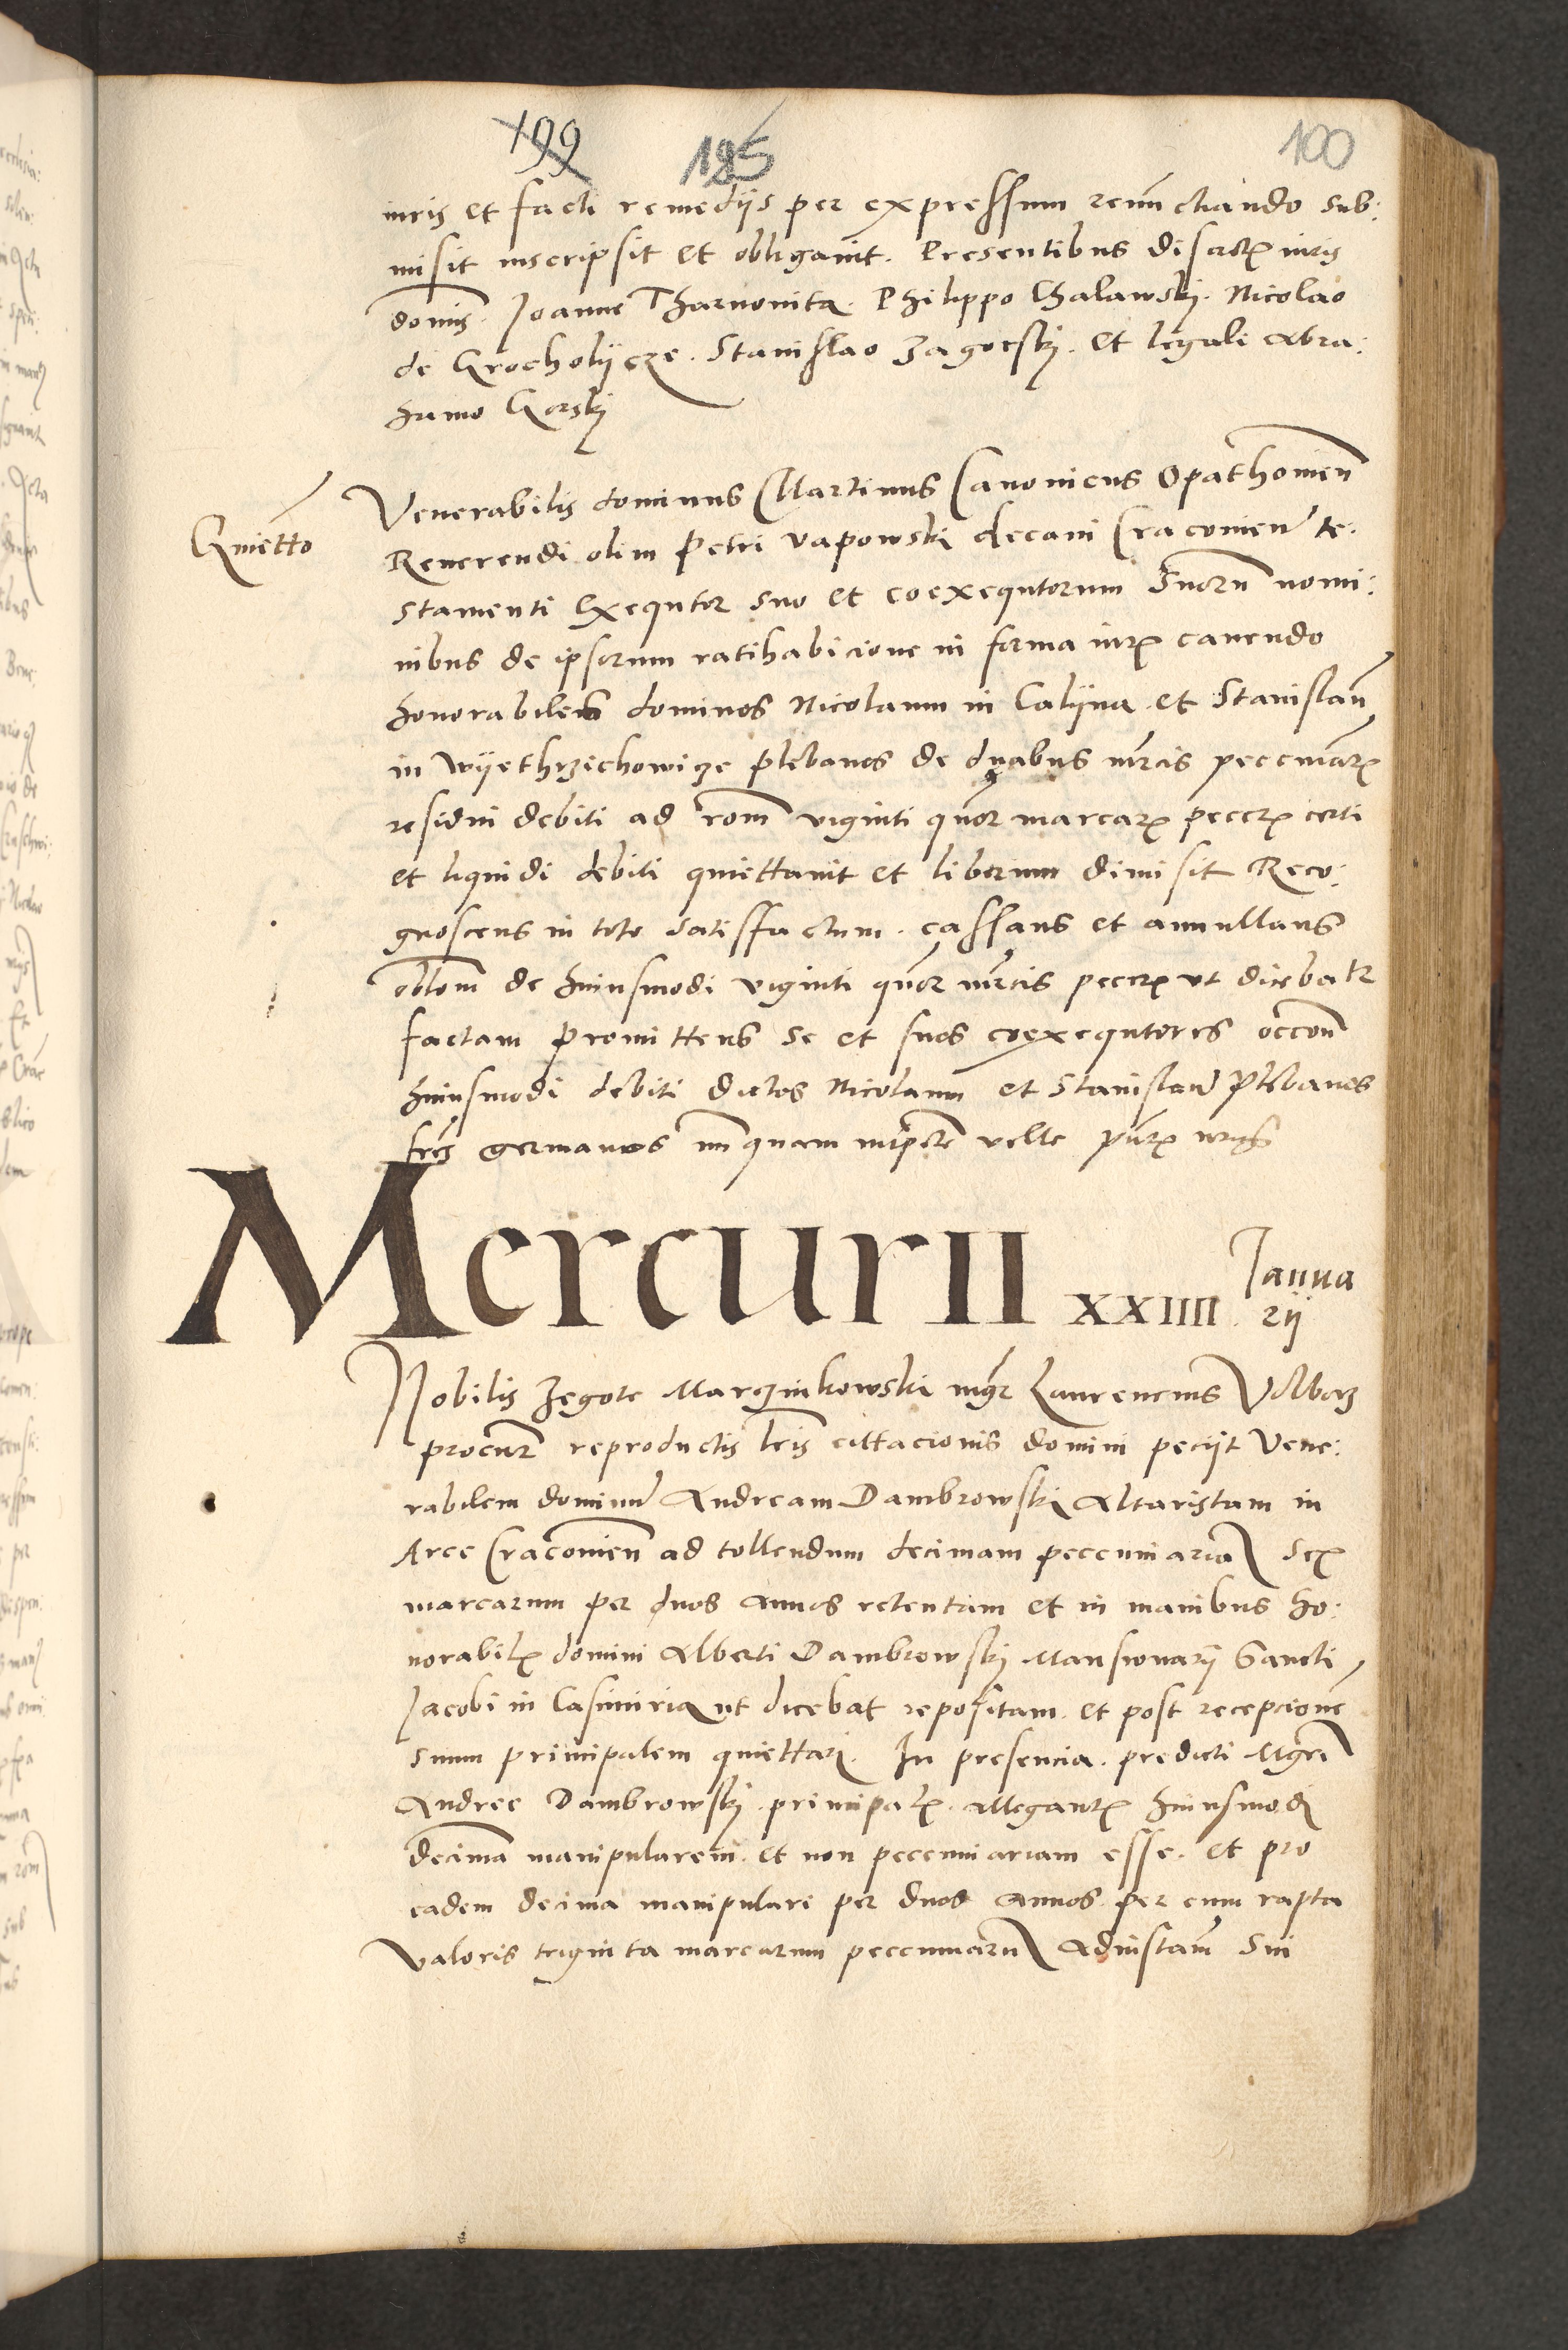 199 185 100
iuris et facti remediis per expressum renunctiando sub:
misit inscripsit et obligavit. Presentibus discretis viris
dominis. Joanne Tharnonita. Philippo Chalawskj. Nicolao
de Grocholijcze. Stanislao Zagorskj. et legali Abra:
hamo Gorskj
Quietto
Venerabilis dominus Martinus Canonicus Opathomien
Reverendi olim Petri Vapowski decani Cracovien te:
stamenti Exequtor suo et coexequtorum suorum nomi:
nibus de ipsorum ratihabicione in forma iuris cavendo
honorabiles dominos Nicolaum in Calijna et Stanislaum
in Wijethrzichowicze plebanos de duabus mrcis peccuniar
residui debiti ad rom viginti quor marcar peccr certi
et liquidi debiti quiettavit et liberum dimisit Reco:
gnoscens in toto satisffactum. cassans et annullans
oblom de huiusmodi viginti quor mrcis peccr ut dicebatr
factam Promittens se et suos coexequtores occon
huiusmodi debiti dictos Nicolaum et Stanislaum Plebanos
fres germanos nunquam impetere velle pntr
Mercurii XXIIII Janua
rij
Nobilis Zegote Marczinkowski mgr Laurencius Volborz
procur reproductis lris cittacionis domini peciit Vene:
rabilem dominum Andream Dambrowskj Altaristam in
Arce Cracovien ad tollendum decimam peccuniariam sex
marcarum per duos annos retentam et in manibus ho:
norabilis domini Alberti Dambrowskj Mansionarij Sancti
Jacobi in Casimiria ut dicebat repositam. et post recepcionem
suum principalem quiettari. In presencia. predicti Mgri
Andree Dambrowskj. principalis. allegantis huiusmodi
decimam manipularem. et non peccuniariam esse. et pro
eadem decima manipulari per duos annos per eum rapta
valoris triginta marcarum peccuniarum Adinstam sui